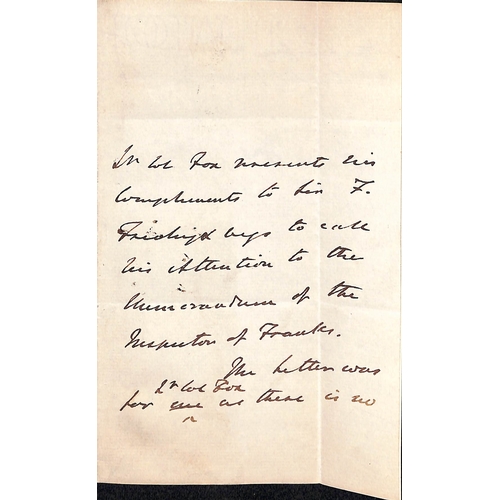 Dr Wl Fox presents his
Compliments to Sir F.
begs to call
his Attention to the
Memorandum of the
Inspector of Franks.
The Letter was
Dr Wl Fox
for me as there is no